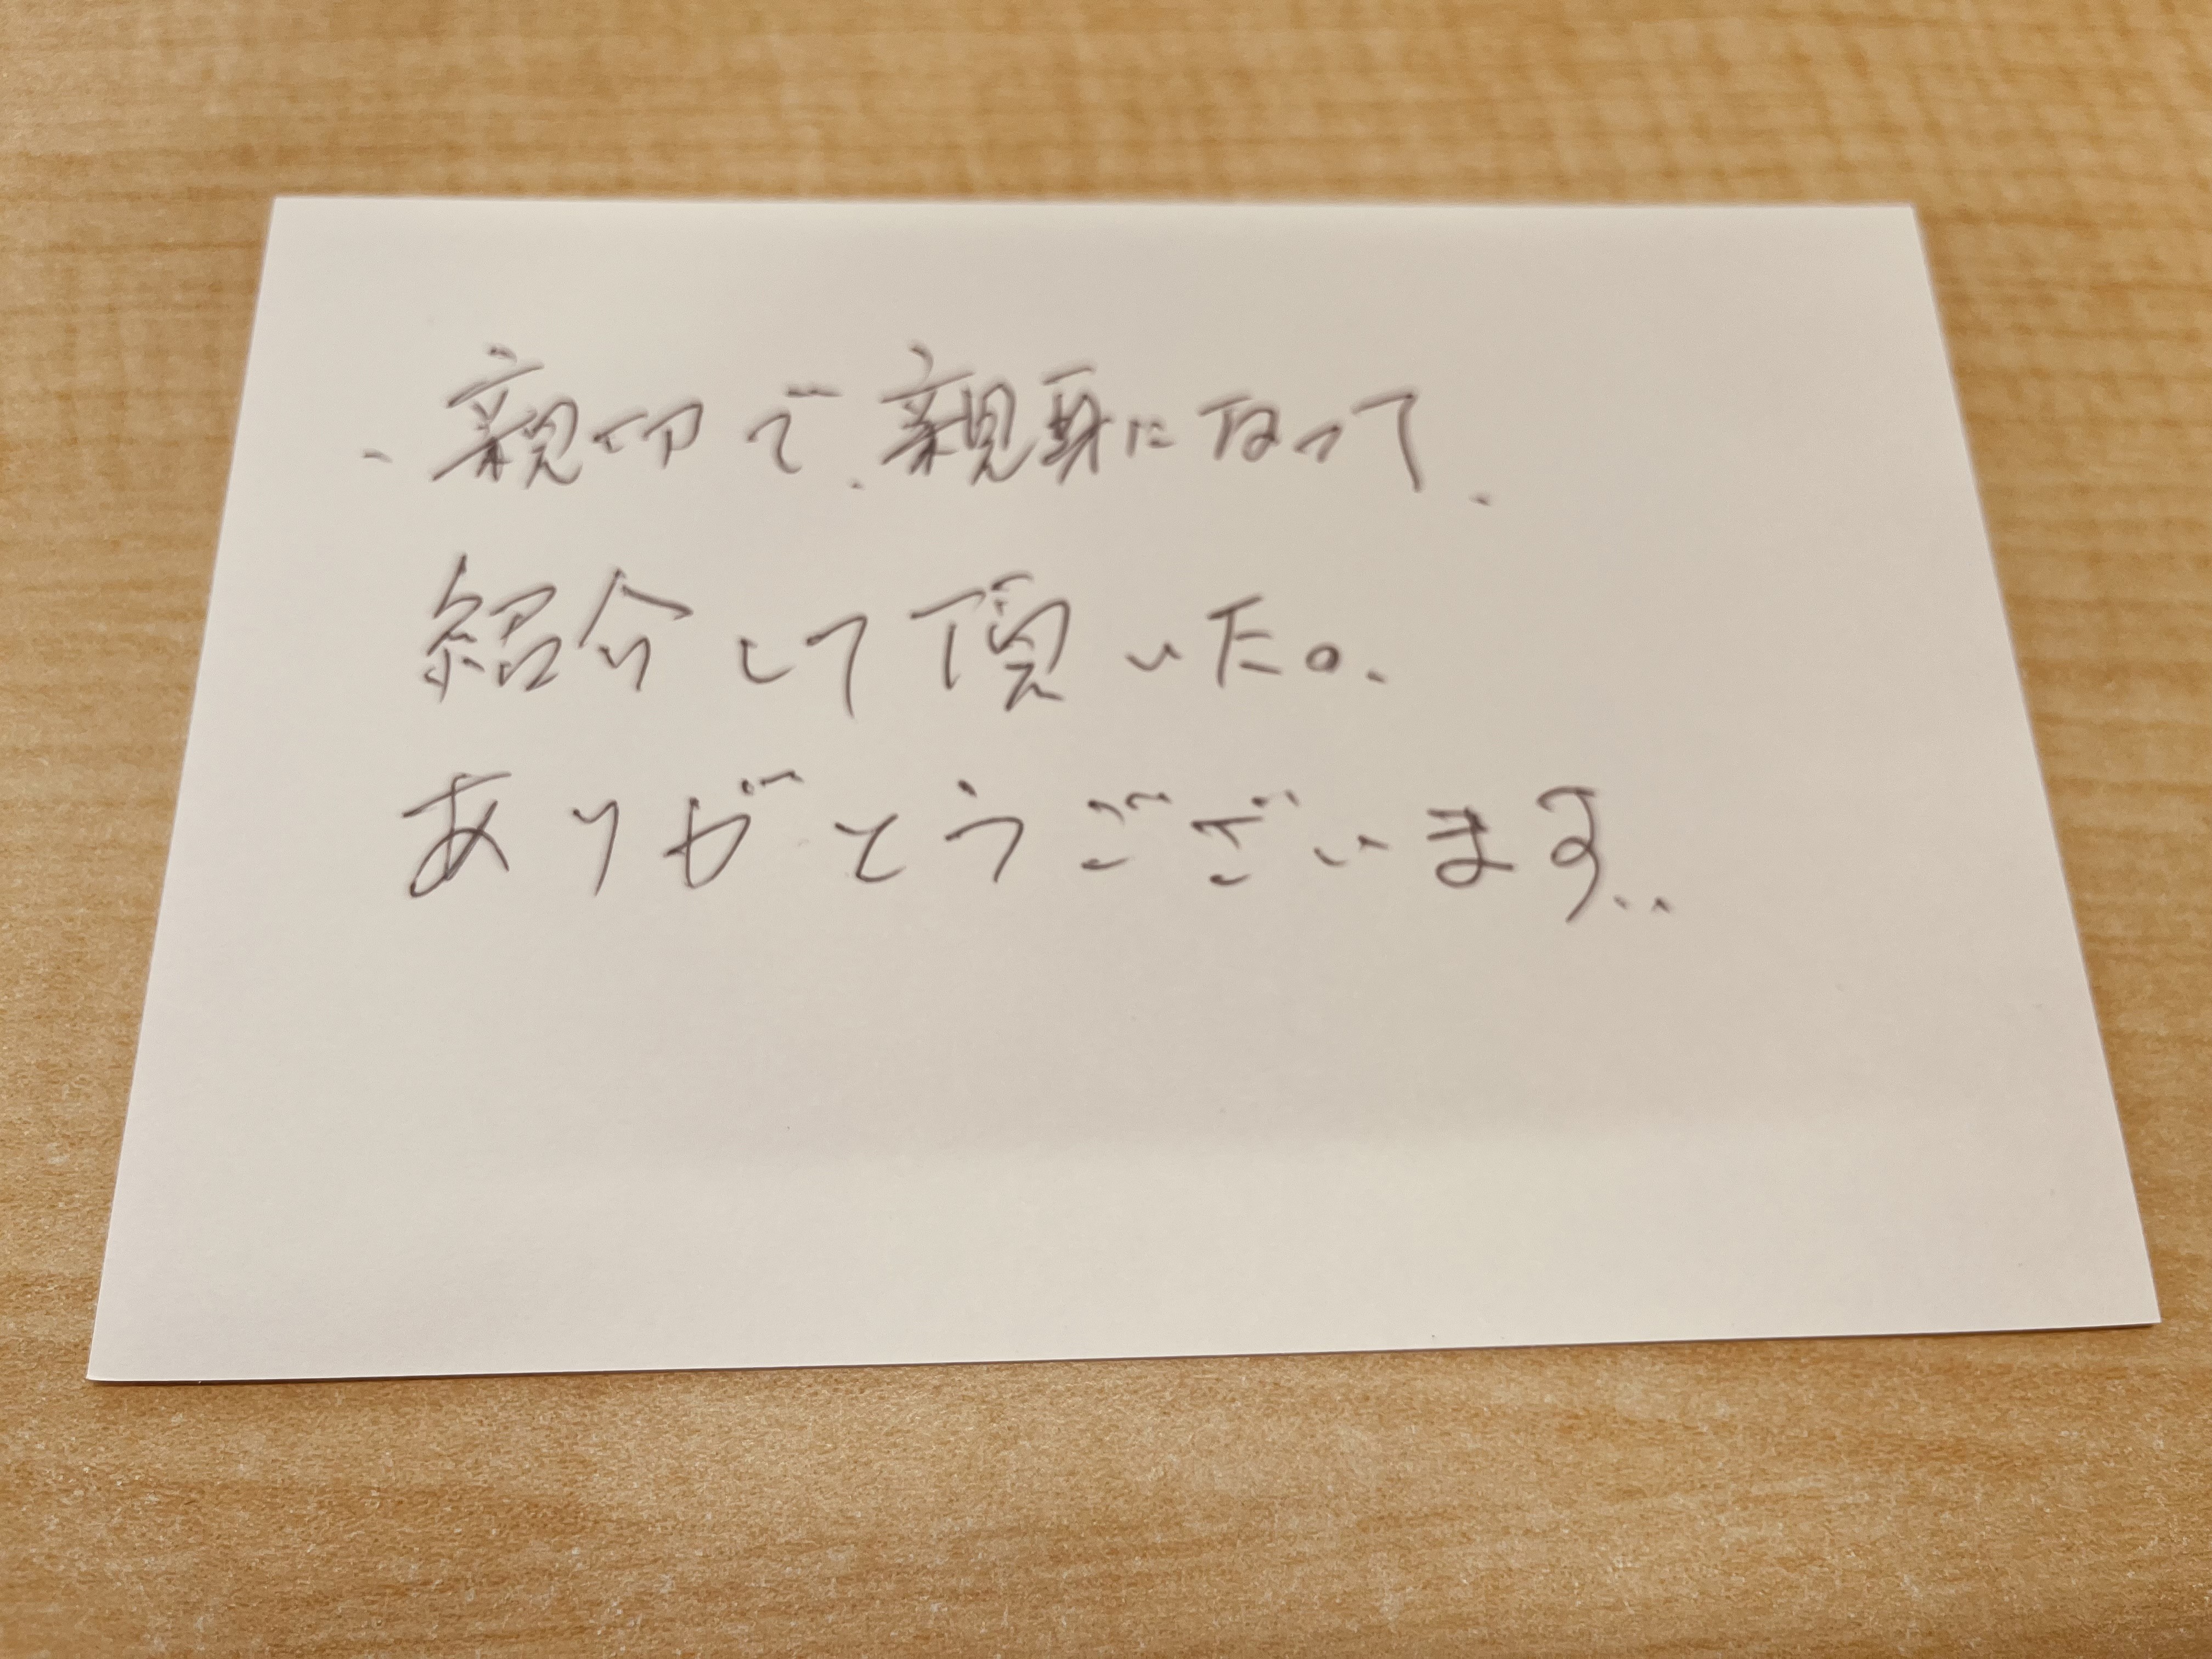 、親切で、親身になって、
紹介して頂いた。
ありがとうございます。